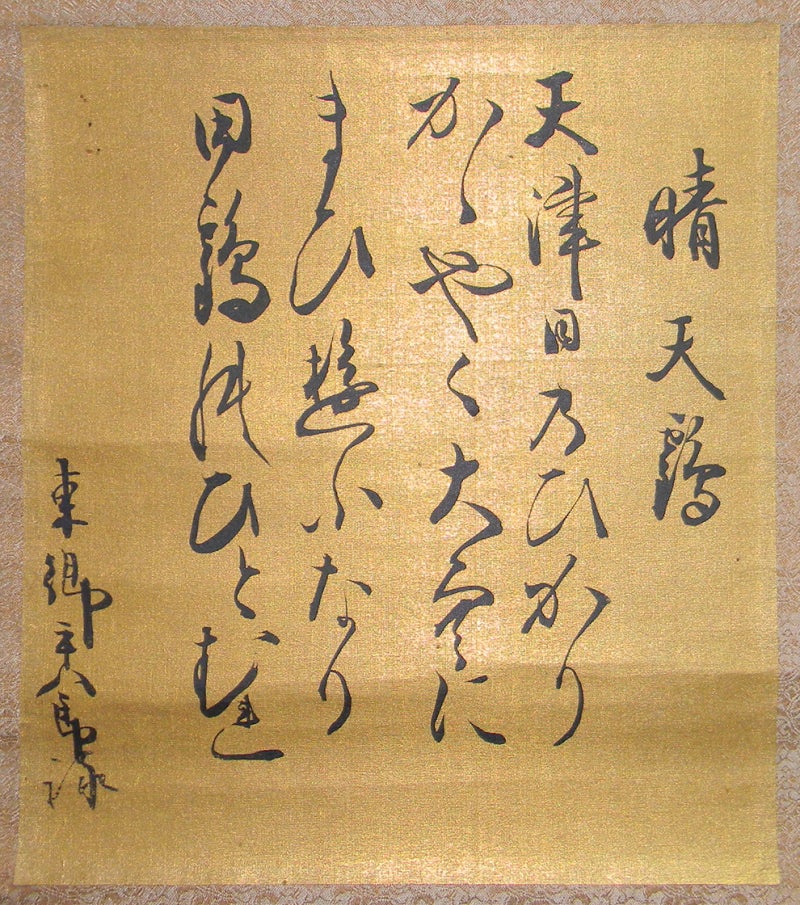 晴天鶴
天津日乃ひかり
かゝやく大空に
まひ遊ふなり
田鶴能ひとむれ
東郷平八郎